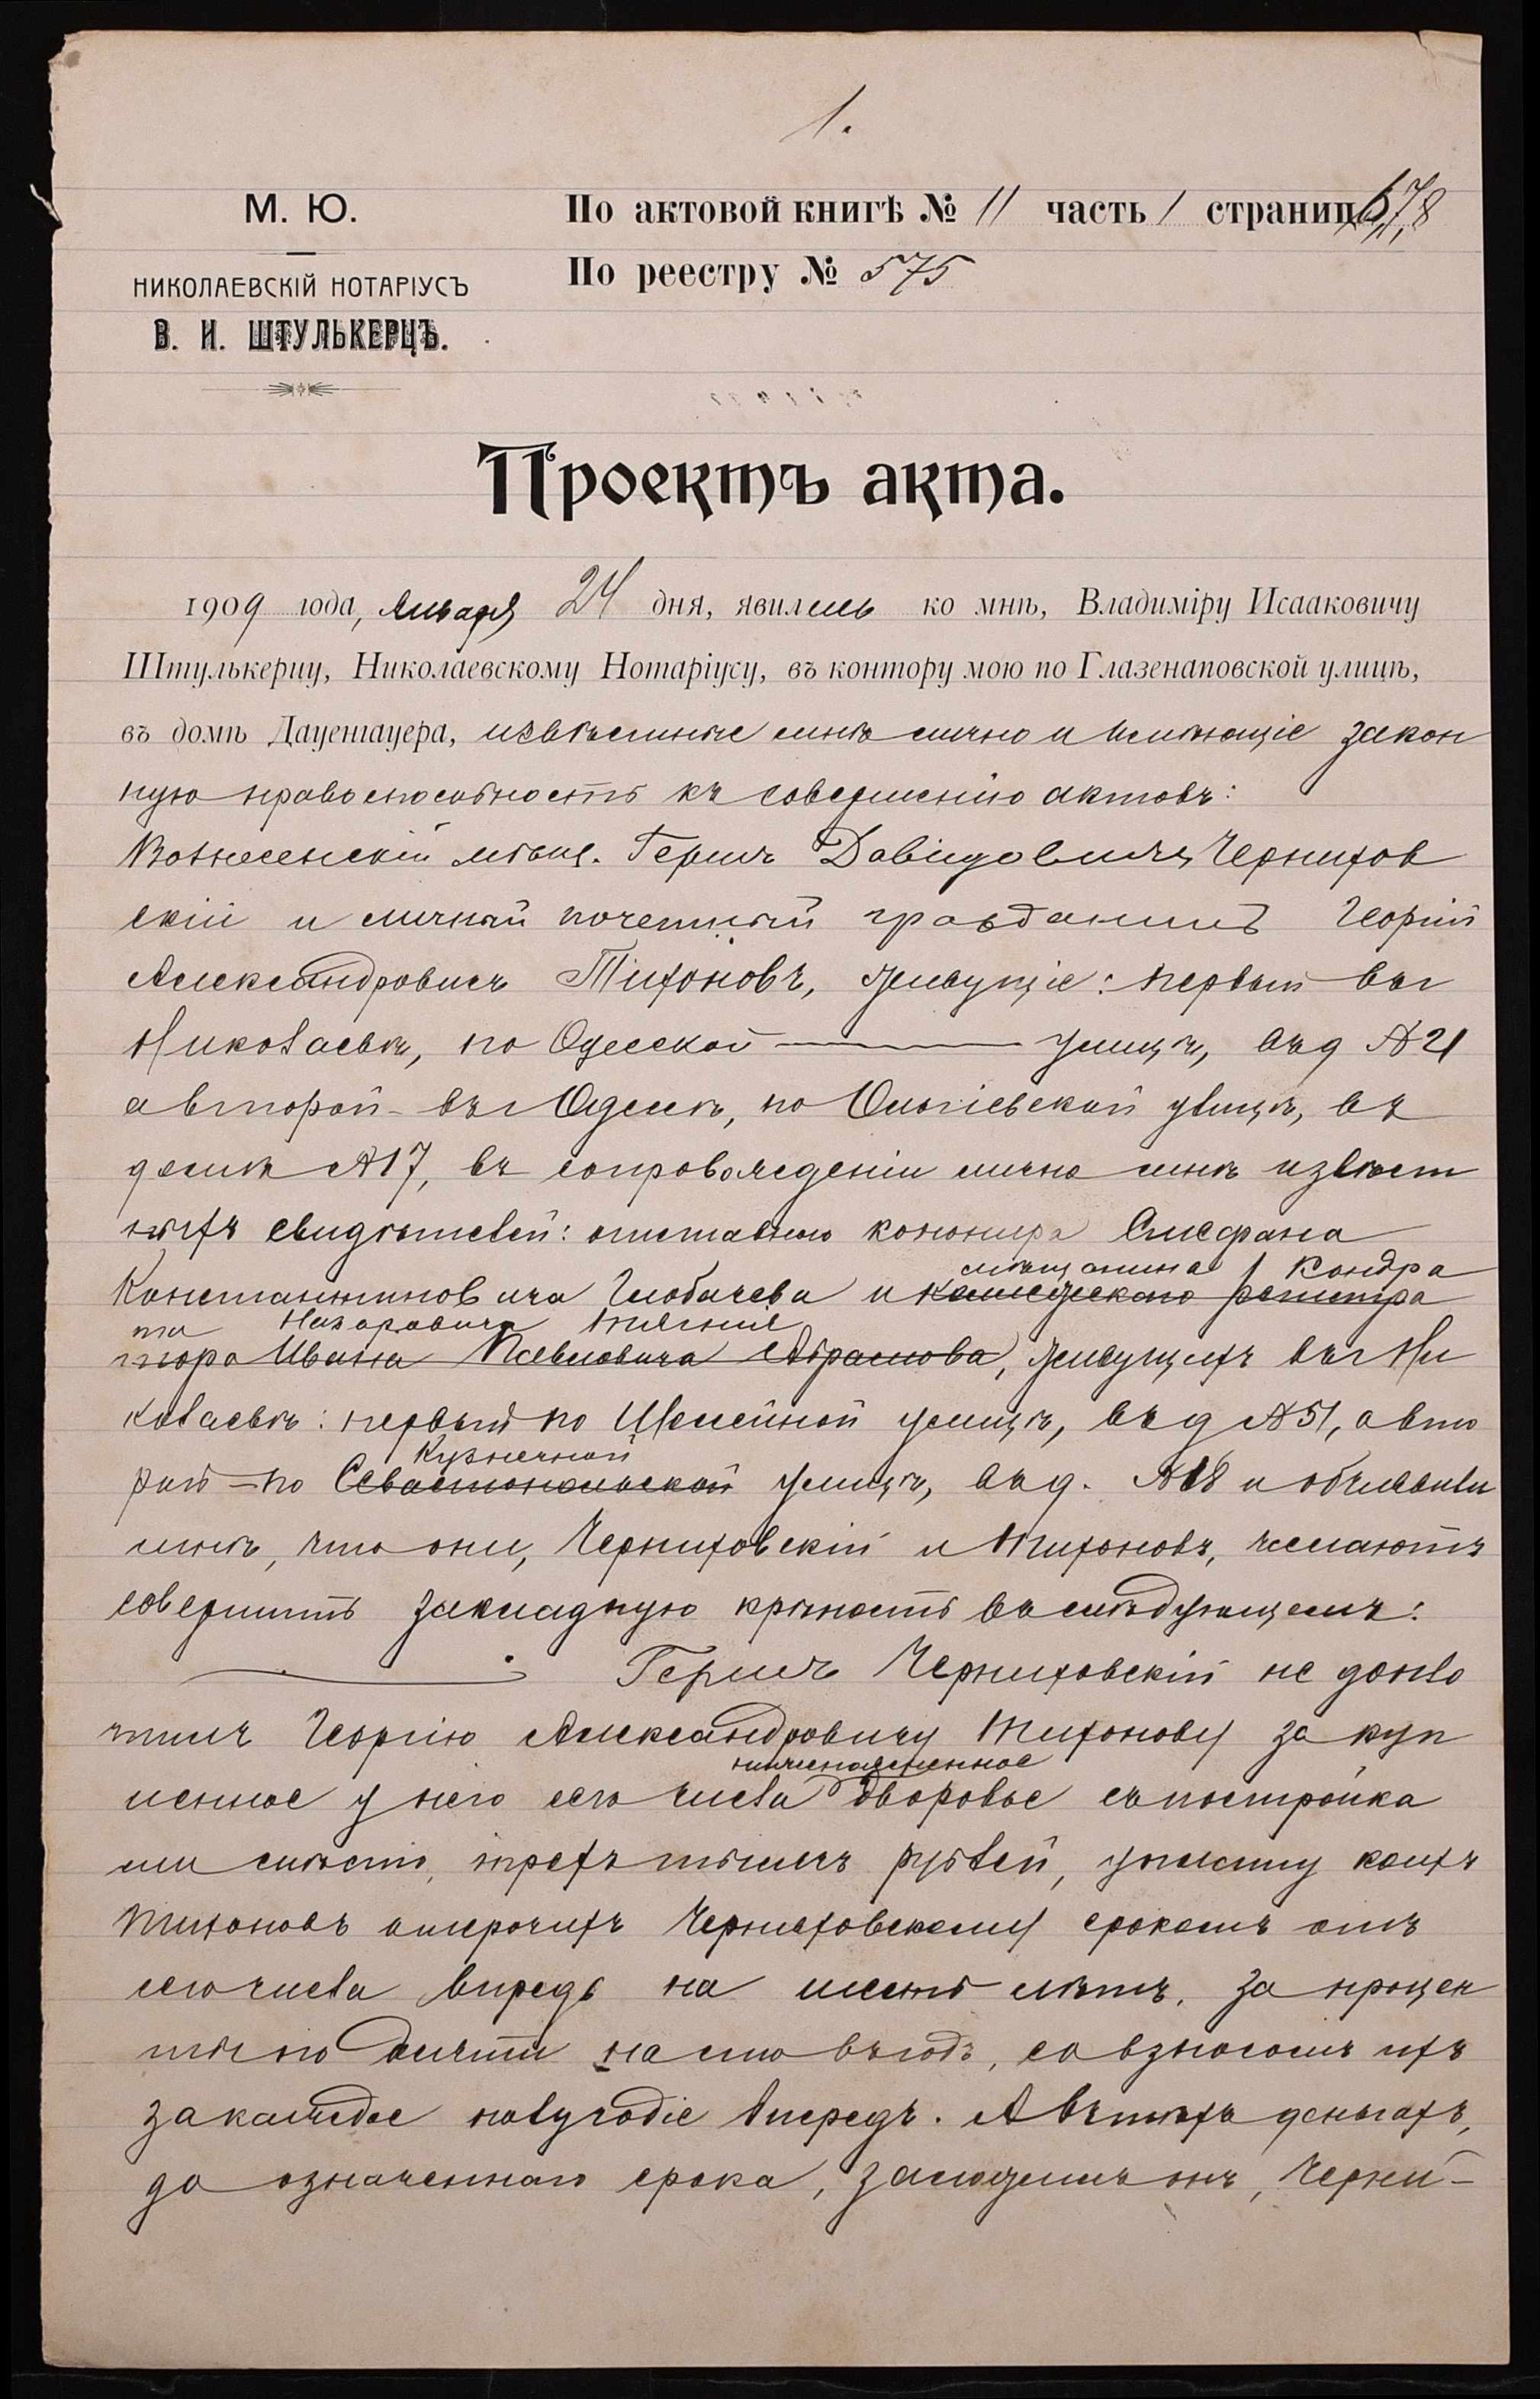 1.
М. Ю.
По актовой книгѣ № 11 часть 1 страниц 6,7,8
НИКОЛАЕВСКІЙ НОТАРІУСЪ
По реестру № 575
В. И. ШТУЛЬКЕРЦЪ.
Проектъ акта.
1909 года, Января 24 дня, явились ко мнѣ, Владиміру Исааковичу
Штулькерцу, Николаевскому Нотаріусу, въ контору мою по Глазенаповской улицѣ,
въ домѣ Дауенгауера, извѣстные мнѣ лично и имѣющіе закон
ную правоспособность къ совершенію актовъ:
Вознесенскій мѣщ. Гершъ Давидовичъ Чернихов
скій и личный почетный гражданинъ Георгій
Александровичъ Тихоновъ, живущіе: первый въ г
Николаевѣ, по Одесской улицѣ, въ д № 21
а второй - въ г Одессѣ, по Ольгіевской улицѣ, въ
домѣ № 17, въ сопровожденіи лично мнѣ извѣст
ныхъ свидѣтелей: отставного Стефана
мѣщанина Кондра
Константиновича Глобачева и коллежскаго регистра
та Назаровича
тора Ивана Павловича Абрамова, живущихъ въ г Ни
колаевѣ: первый по улицѣ, въ д № 51, а вто
Кузнечной
рой - по Севастопольской улицѣ, въ д. № 18 и объявили
мнѣ, что они, Черниховскій и Тихоновъ, желаютъ
совершить закладную крѣпость въ слѣдующемъ:
Гершъ Черниховскій не допла
тилъ Георгію Александровичу Тихонову за куп
нижеозначенное
ленное у него сего числа дворовое съ постройка
ми мѣсто, трехъ тысячъ рублей, уплату коихъ
Тихоновъ отсрочилъ Черниховскому срокомъ отъ
сего числа впредь на шесть лѣтъ, за процен
ты по девяти на сто въ годъ, со взносомъ ихъ
за каждое полугодіе впередъ. А въ тѣхъ деньгахъ,
до означеннаго срока, заложилъ онъ, Черни-